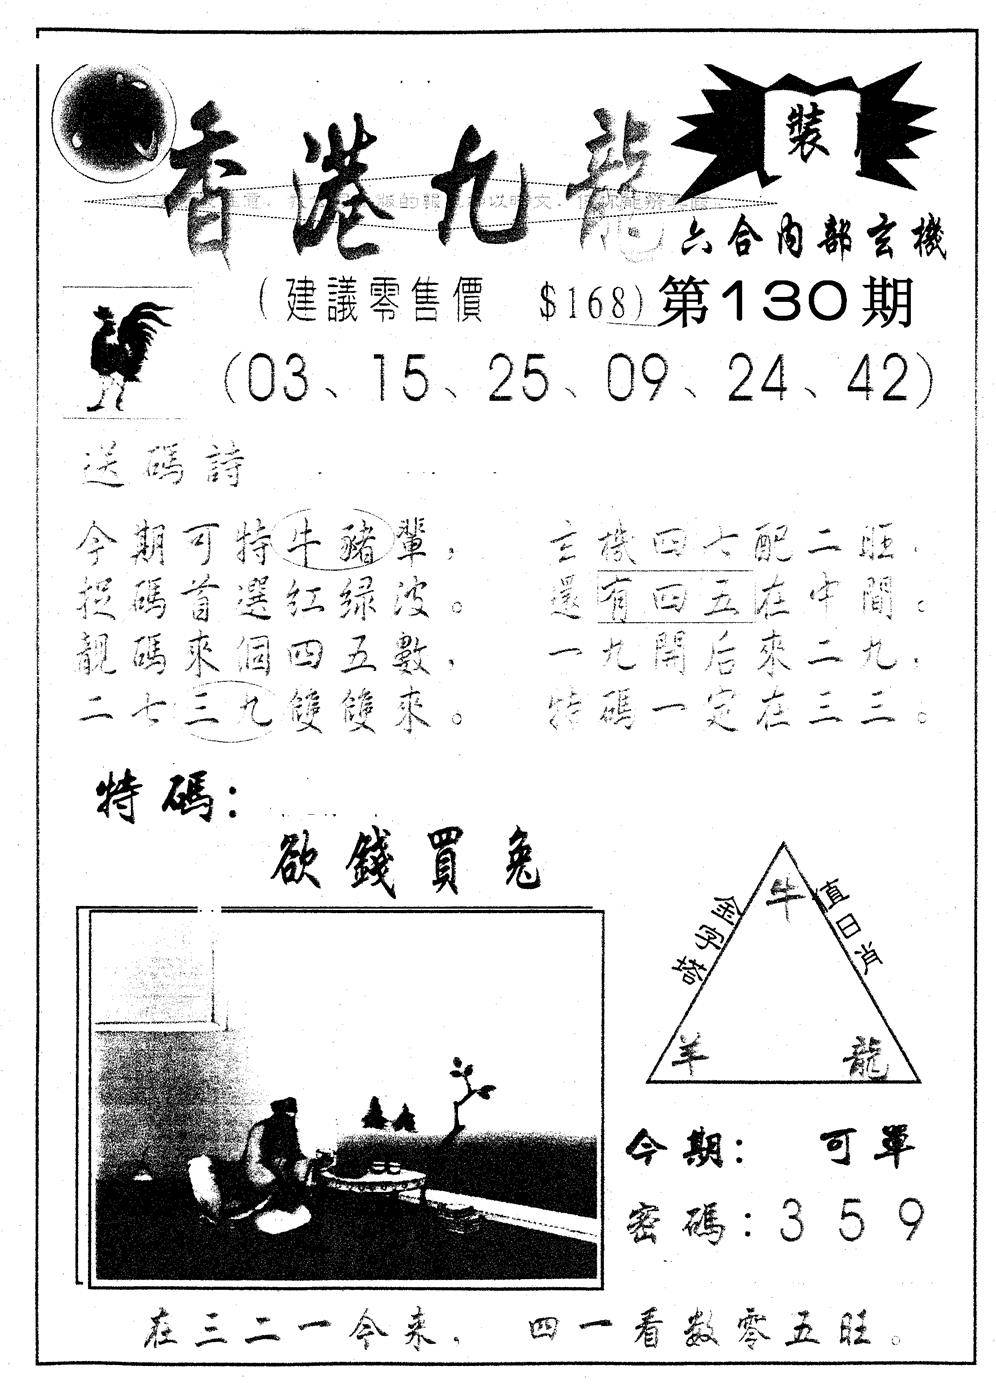 香港九龍
裝
六合內部玄機
(建議零售價 $168)第130期
(03、15、25、09、24、42)
送碼詩
今期可特牛豬輩，
捉碼首選红绿波。
靚碼來個四五數，
二七三九雙雙來。
玄機四七配二旺，
還有四五在中間。
一九開后來二九，
特碼一定在三三。
特碼：
欲錢買兔
金字塔
牛
值日肖
羊
龍
今期：可單
密碼：359
在三二一今来， 四一看数零五旺。